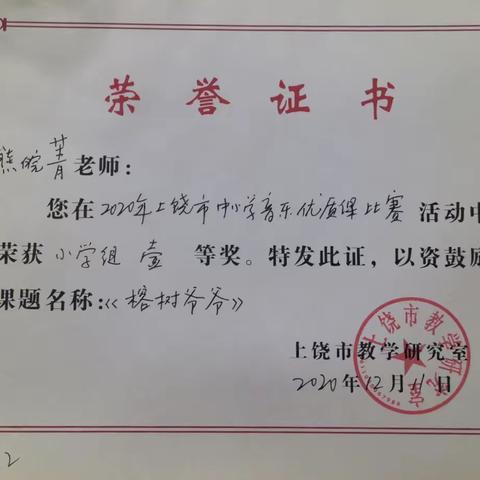 荣誉证书
熊皖菁老师：
您在2020年上饶市中小学音乐优质课比赛活动中
荣获小学组壹等奖。特发此证，以资鼓励
课题名称：《榕树爷爷》
上饶市教学研究室
2020年12月11日
上饶市教学研究室
2